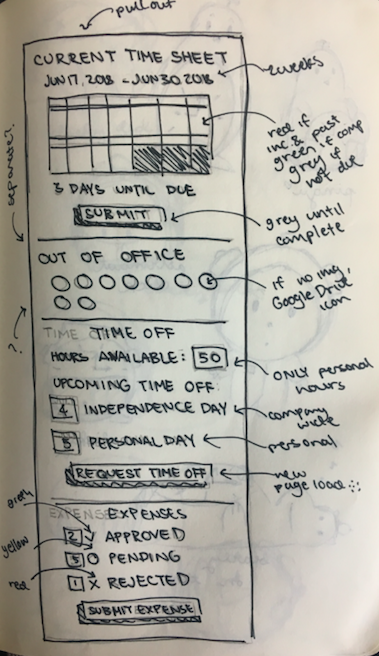 pullout
CURRENT TIME SHEET
JUN 17, 2018 - JUN 30 2018
2 weeks
red if
inc & past
green if comp
grey if
not due
3 DAYS UNTIL DUE
SUBMIT
grey until
complete
separate?
OUT OF OFFICE
if no img,
Google Drive
icon
?
TIME TIME OFF
HOURS AVAILABLE: 50
ONLY personal
hours
UPCOMING TIME OFF
4 INDEPENDENCE DAY
company
wide
5 PERSONAL DAY
personal
REQUEST TIME OFF
new
page load
EXPENSE EXPENSES
green
2 ✓ APPROVED
yellow
3 O PENDING
red
1 X REJECTED
SUBMIT EXPENSE